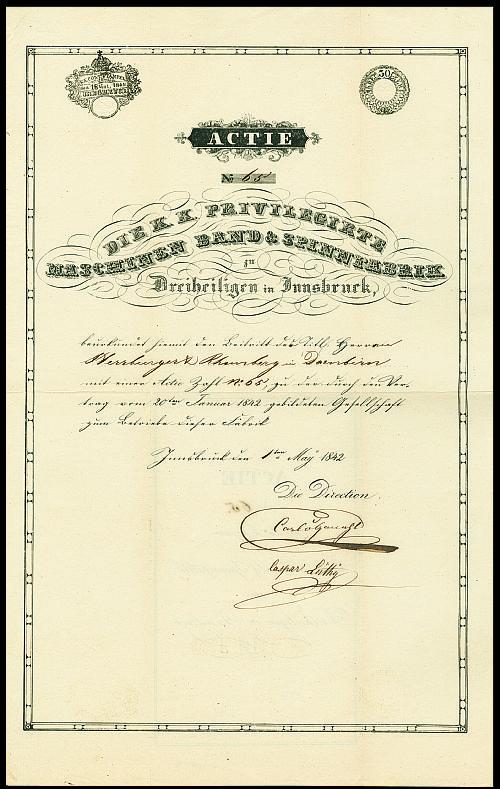 ACTIE
№ 65
DIE K. K. PRIVILEGIRTE
MASCHINEN BAND & SPINNFABRIK
zu
Dreiheiligen in Innsbruck,
beurkundet hiemit den Beitritt des Titl. Herren
Herrburger & Rhomberg in Dornbirn
mit einer Actie Zahl No 65, zu der durch den Ver-
trag vom 20ten Januar 1842 gebildeten Gesellschaft
zum Betriebe dieser Fabrik
Innsbruck den 1ten May 1842
Die Direction.
Carl Ganahl
Caspar Lüthy